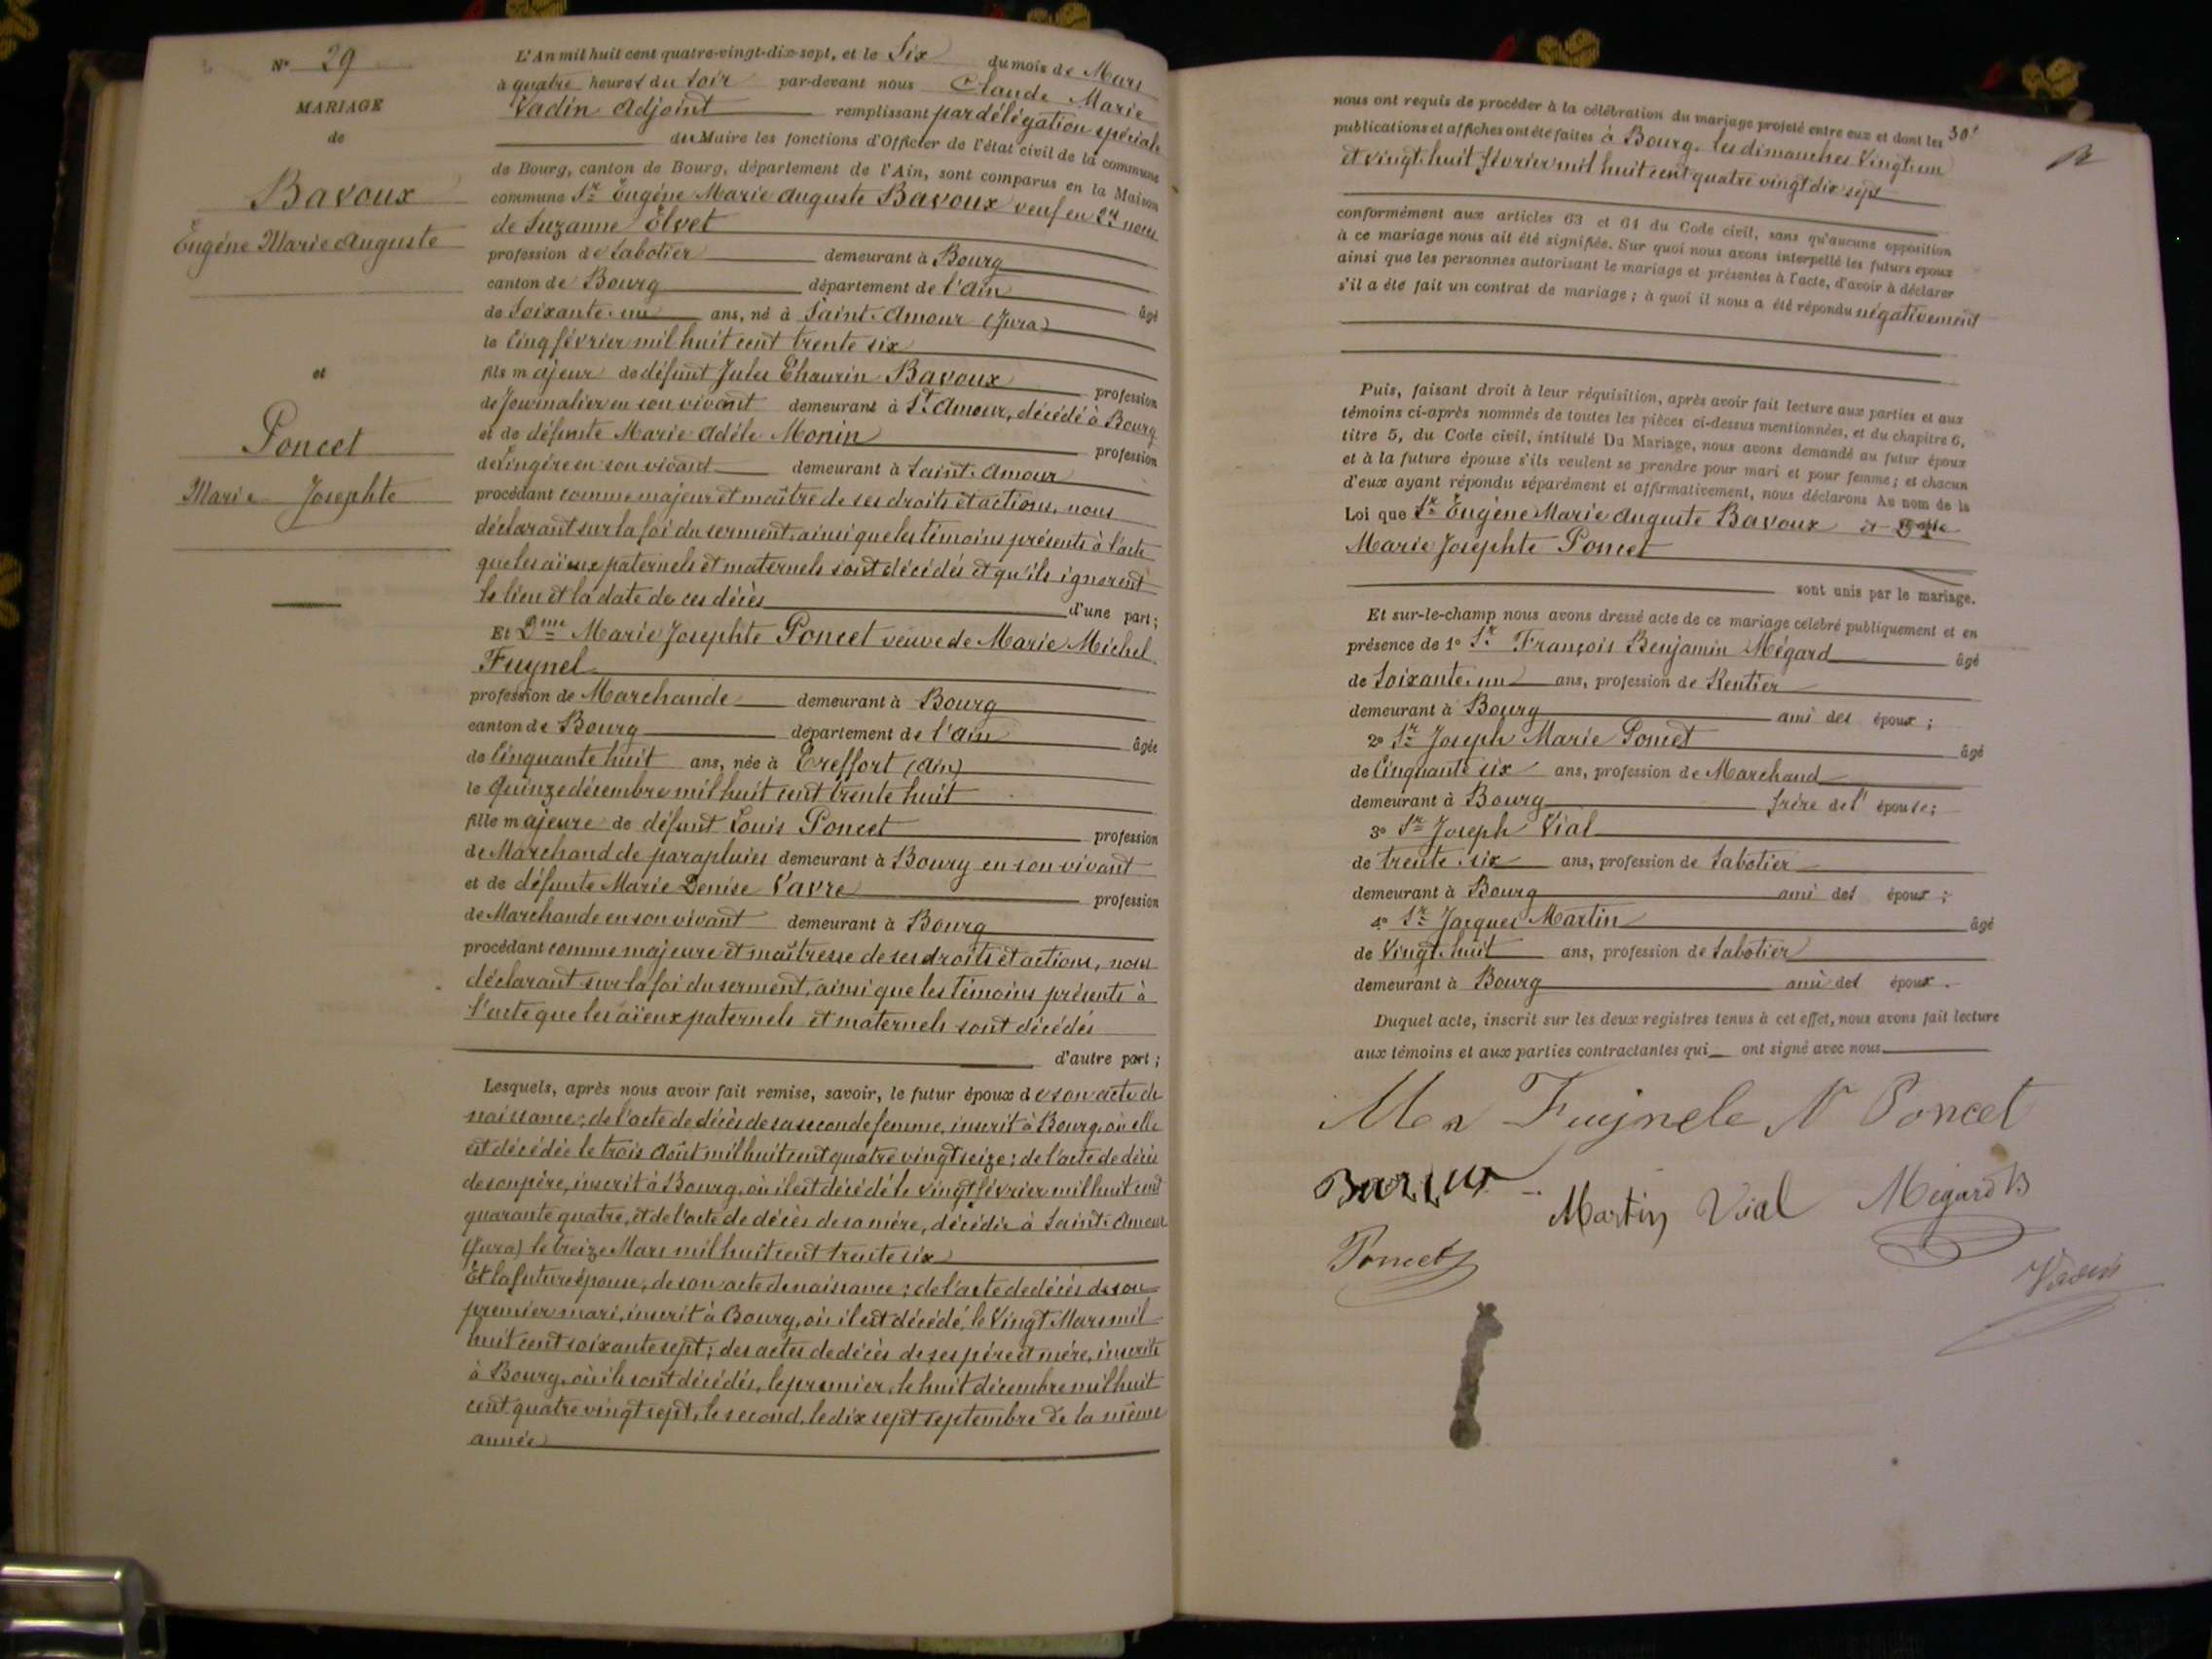 N° 29
MARIAGE
de
Bavoux
Eugéne Marie Auguste
et
Poncet
Marie Josephte
L'An mil huit cent quatre-vingt-dix-sept, et le Six du mois de Mars
à quatre heures du soir par-devant nous Claude Marie
Vadin Adjoint remplissant par délégation spéciale
du Maire les fonctions d'Officier de l'état civil de la commune
de Bourg, canton de Bourg, département de l'Ain, sont comparus en la Maison
commune Sr Eugéne Marie Auguste Bavoux veuf en 2es noces
de Suzanne Elvet
profession de Sabotier demeurant à Bourg
canton de Bourg département de l'Ain âgé
de Soixante-un ans, né à Saint-Amour (Jura)
le Cinq février mil huit cent trente six
fils majeur de défunt Jules Thaurin Bavoux profession
de Journalier en son vivant demeurant à St Amour, décédé à Bourg
et de défunte Marie Adéle Monin profession
de Lingére en son vivant demeurant à Saint-Amour
procédant comme majeur et maître de ses droits et actions, nous
déclarant sur la foi du serment, ainsi que les témoins présents à l'acte
que les aïeux paternels et maternels sont décédés et qu'ils ignorent
le lieu et la date de ces décès d'une part;
Et Dme Marie Josephte Poncet veuve de Marie Michel
Fuynel
profession de Marchande demeurant à Bourg
canton de Bourg département de l'Ain âgée
de Cinquante huit ans, née à Treffort (Ain)
le Quinze décembre mil huit cent trente huit
fille majeure de défunt Louis Poncet profession
de Marchand de parapluies demeurant à Bourg en son vivant
et de défunte Marie Denise Vavre profession
de Marchande en son vivant demeurant à Bourg
procédant comme majeure et maîtresse de ses droits et actions, nous
déclarant sur la foi du serment, ainsi que les témoins présents à
l'acte que les aïeux paternels et maternels sont décédés
d'autre part;
Lesquels, après nous avoir fait remise, savoir, le futur époux de son acte de
naissance; de l'acte de décès de sa seconde femme, inscrit à Bourg, où elle
est décédée le trois Août mil huit cent quatre vingt seize; de l'acte de décès
de son père, inscrit à Bourg, où il est décédé le vingt février mil huit cent
quarante quatre, et de l'acte de décès de sa mère, décédée à Saint-Amour
(Jura) le treize Mars mil huit cent trente six
Et la future épouse, de son acte de naissance; de l'acte de décès de son
premier mari, inscrit à Bourg, où il est décédé, le Vingt Mars mil
huit cent soixante sept; des actes de décès de ses père et mére, inscrits
à Bourg, où ils sont décédés, le premier, le huit décembre mil huit
cent quatre vingt sept, le second, le dix sept septembre de la même
année
nous ont requis de procéder à la célébration du mariage projeté entre eux et dont les
publications et affiches ont été faites à Bourg, les dimanches Vingt-un
et vingt-huit février mil huit cent quatre vingt dix sept
conformément aux articles 63 et 64 du Code civil, sans qu'aucune opposition
à ce mariage nous ait été signifiée. Sur quoi nous avons interpellé les futurs époux
ainsi que les personnes autorisant le mariage et présentes à l'acte, d'avoir à déclarer
s'il a été fait un contrat de mariage; à quoi il nous a été répondu négativement
Puis, faisant droit à leur réquisition, après avoir fait lecture aux parties et aux
témoins ci-après nommés de toutes les pièces ci-dessus mentionnées, et du chapitre 6,
titre 5, du Code civil, intitulé Du Mariage, nous avons demandé au futur époux
et à la future épouse s'ils veulent se prendre pour mari et pour femme; et chacun
d'eux ayant répondu séparément et affirmativement, nous déclarons Au nom de la
Loi que Sr Eugéne Marie Auguste Bavoux et
Marie Josephte Poncet
sont unis par le mariage.
Et sur-le-champ nous avons dressé acte de ce mariage célébré publiquement et en
présence de 1° Sr François Benjamin Mégard âgé
de Soixante-un ans, profession de Rentier
demeurant à Bourg ami des époux;
2° Sr Joseph Marie Poncet âgé
de Cinquante six ans, profession de Marchand
demeurant à Bourg frère de l'épouse;
3° Sr Joseph Vial
de trente-six ans, profession de Sabotier
demeurant à Bourg ami des époux;
4° Sr Jacques Martin âgé
de Vingt-huit ans, profession de Sabotier
demeurant à Bourg ami des époux.
Duquel acte, inscrit sur les deux registres tenus à cet effet, nous avons fait lecture
aux témoins et aux parties contractantes qui ont signé avec nous
Fuynele N Poncet
Martin Vial Mégard B
Poncet
Vadin